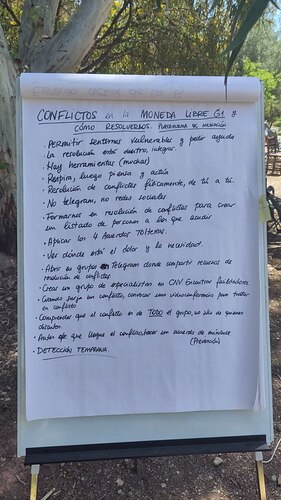 CONFLICTOS en la MONEDA LIBRE G1 y
CÓMO RESOLVERLOS. PLATAFORMA DE MEDIACIÓN
· Permitir sentirnos vulnerables y pedir ayuda
la resolución está dentro, integrar.
· Hay herramientas (muchas)
· Respira, luego piensa y actúa
· Resolución de conflictos físicamente, de tú a tú.
· No telegram, no redes sociales
· Formarnos en resolución de conflictos para crear
un listado de personas a las que acudir
· Aplicar los 4 Acuerdos Toltecas.
· Ver dónde está el dolor y la necesidad.
· Abrir un grupo en Telegram donde compartir recursos de
resolución de conflictos
· Crear un grupo de especialistas en CNV Encontrar facilitadores
· Cuando surja un conflicto, convocar una videoconferencia para tratar
el conflicto
· Comprender que el conflicto es de TODO el grupo, no solo de quienes
discuten.
· Antes de que llegue el conflicto, hacer un acuerdo de mínimos
(Prevención)
· DETECCIÓN TEMPRANA.